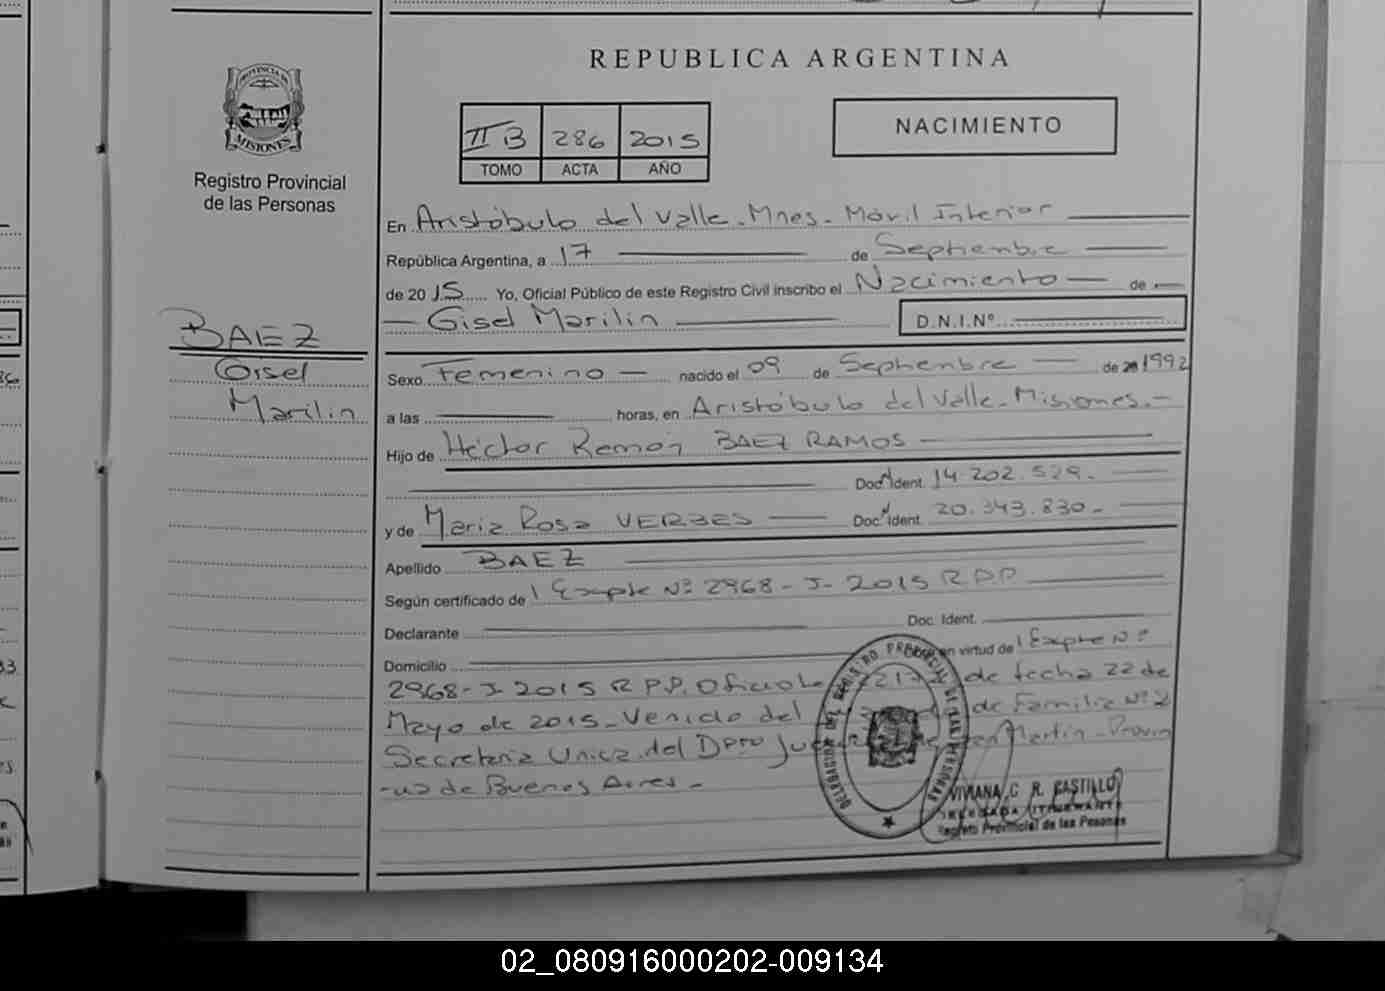 REPUBLICA ARGENTINA
PROVINCIA DE
MISIONES
Registro Provincial
de las Personas
II B 286 2015
TOMO ACTA AÑO
NACIMIENTO
En Aristóbulo del Valle - Mnes - Móvil Interior
República Argentina, a 17 de Septiembre
de 2015 Yo, Oficial Público de este Registro Civil inscribo el Nacimiento de
Gisel Marilin D.N.I.Nº
BAEZ
Gisel
Marilin
Sexo Femenino nacido el 09 de Septiembre de 1992
a las horas, en Aristóbulo del Valle - Misiones.-
Hijo de Héctor Ramón BAEZ RAMOS
Doc. Ident. 14.202.529.-
y de Maria Rosa VERBES Doc. Ident. 20.343.830.-
Apellido BAEZ
Según certificado de Expte Nº 2968-J-2015 RPP
Declarante Doc. Ident.
Domicilio en virtud de Expte Nº
2968-J-2015 R.P.P. Oficio de fecha 22 de
Mayo de 2015 - Venido del de Familia Nº 2
Secretaria Unica del Dpto San Martin - Provin
-cia de Buenos Aires.-
DELEGACION DEL REGISTRO PROVINCIAL DE LAS PERSONAS
VIVIANA C. R. CASTILLO
DELEGADA ITINERANTE
Registro Provincial de las Personas
02_080916000202-009134